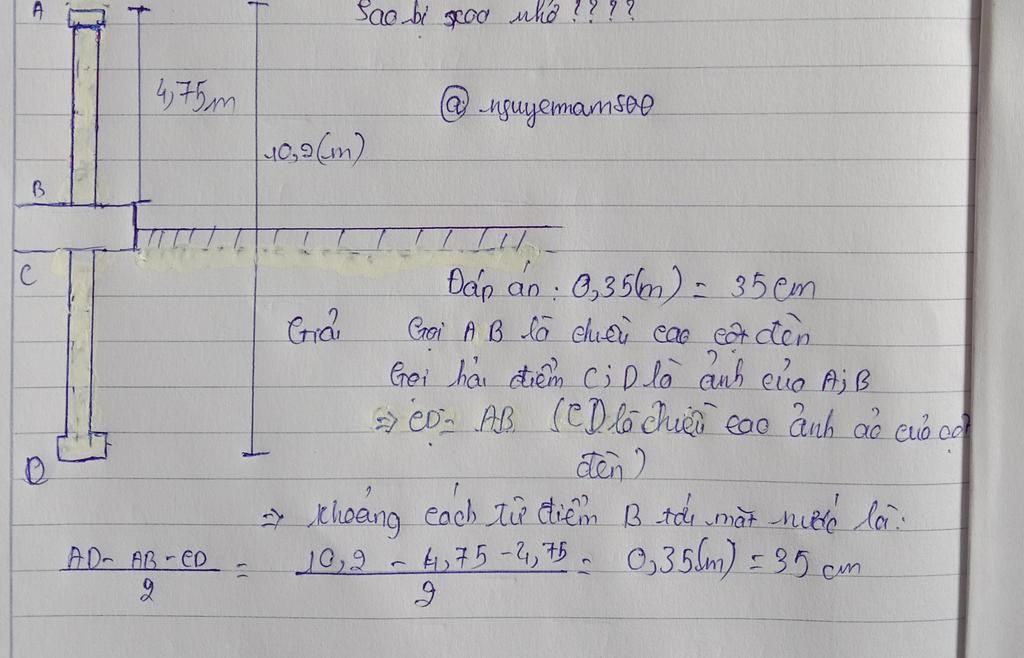 A
Sao bị xoa nhớ ????
4,75m
@ nguyemam500
10,2(m)
B
C
Đáp án : 0,35(m) = 35 cm
Giải Gọi AB là chiều cao cột đèn
Gọi hai điểm C;D là ảnh của A;B
=> CD = AB (CD là chiều cao ảnh ảo của cột
đèn)
D
=> khoảng cách từ điểm B tới mặt nước là:
AD - AB - CD / 2 = 10,2 - 4,75 - 4,75 / 2 = 0,35(m) = 35 cm